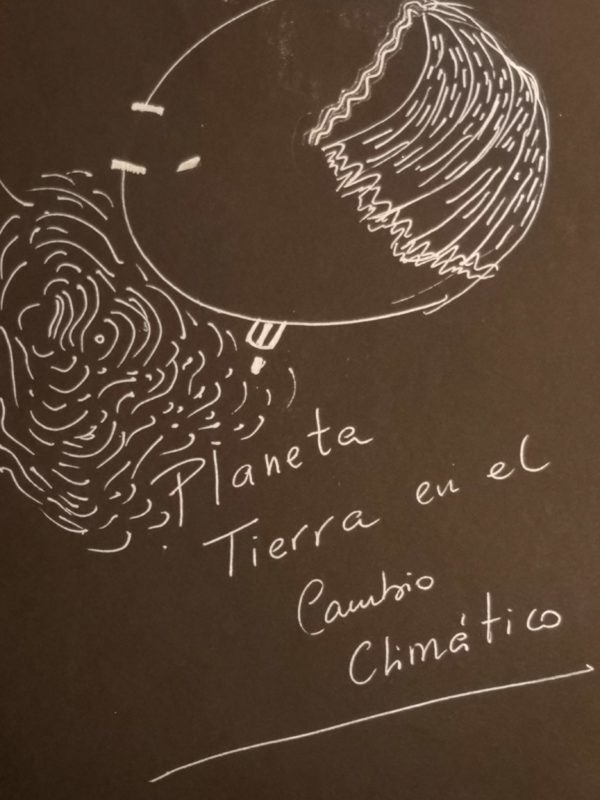 Planeta
Tierra en el
Cambio
Climático